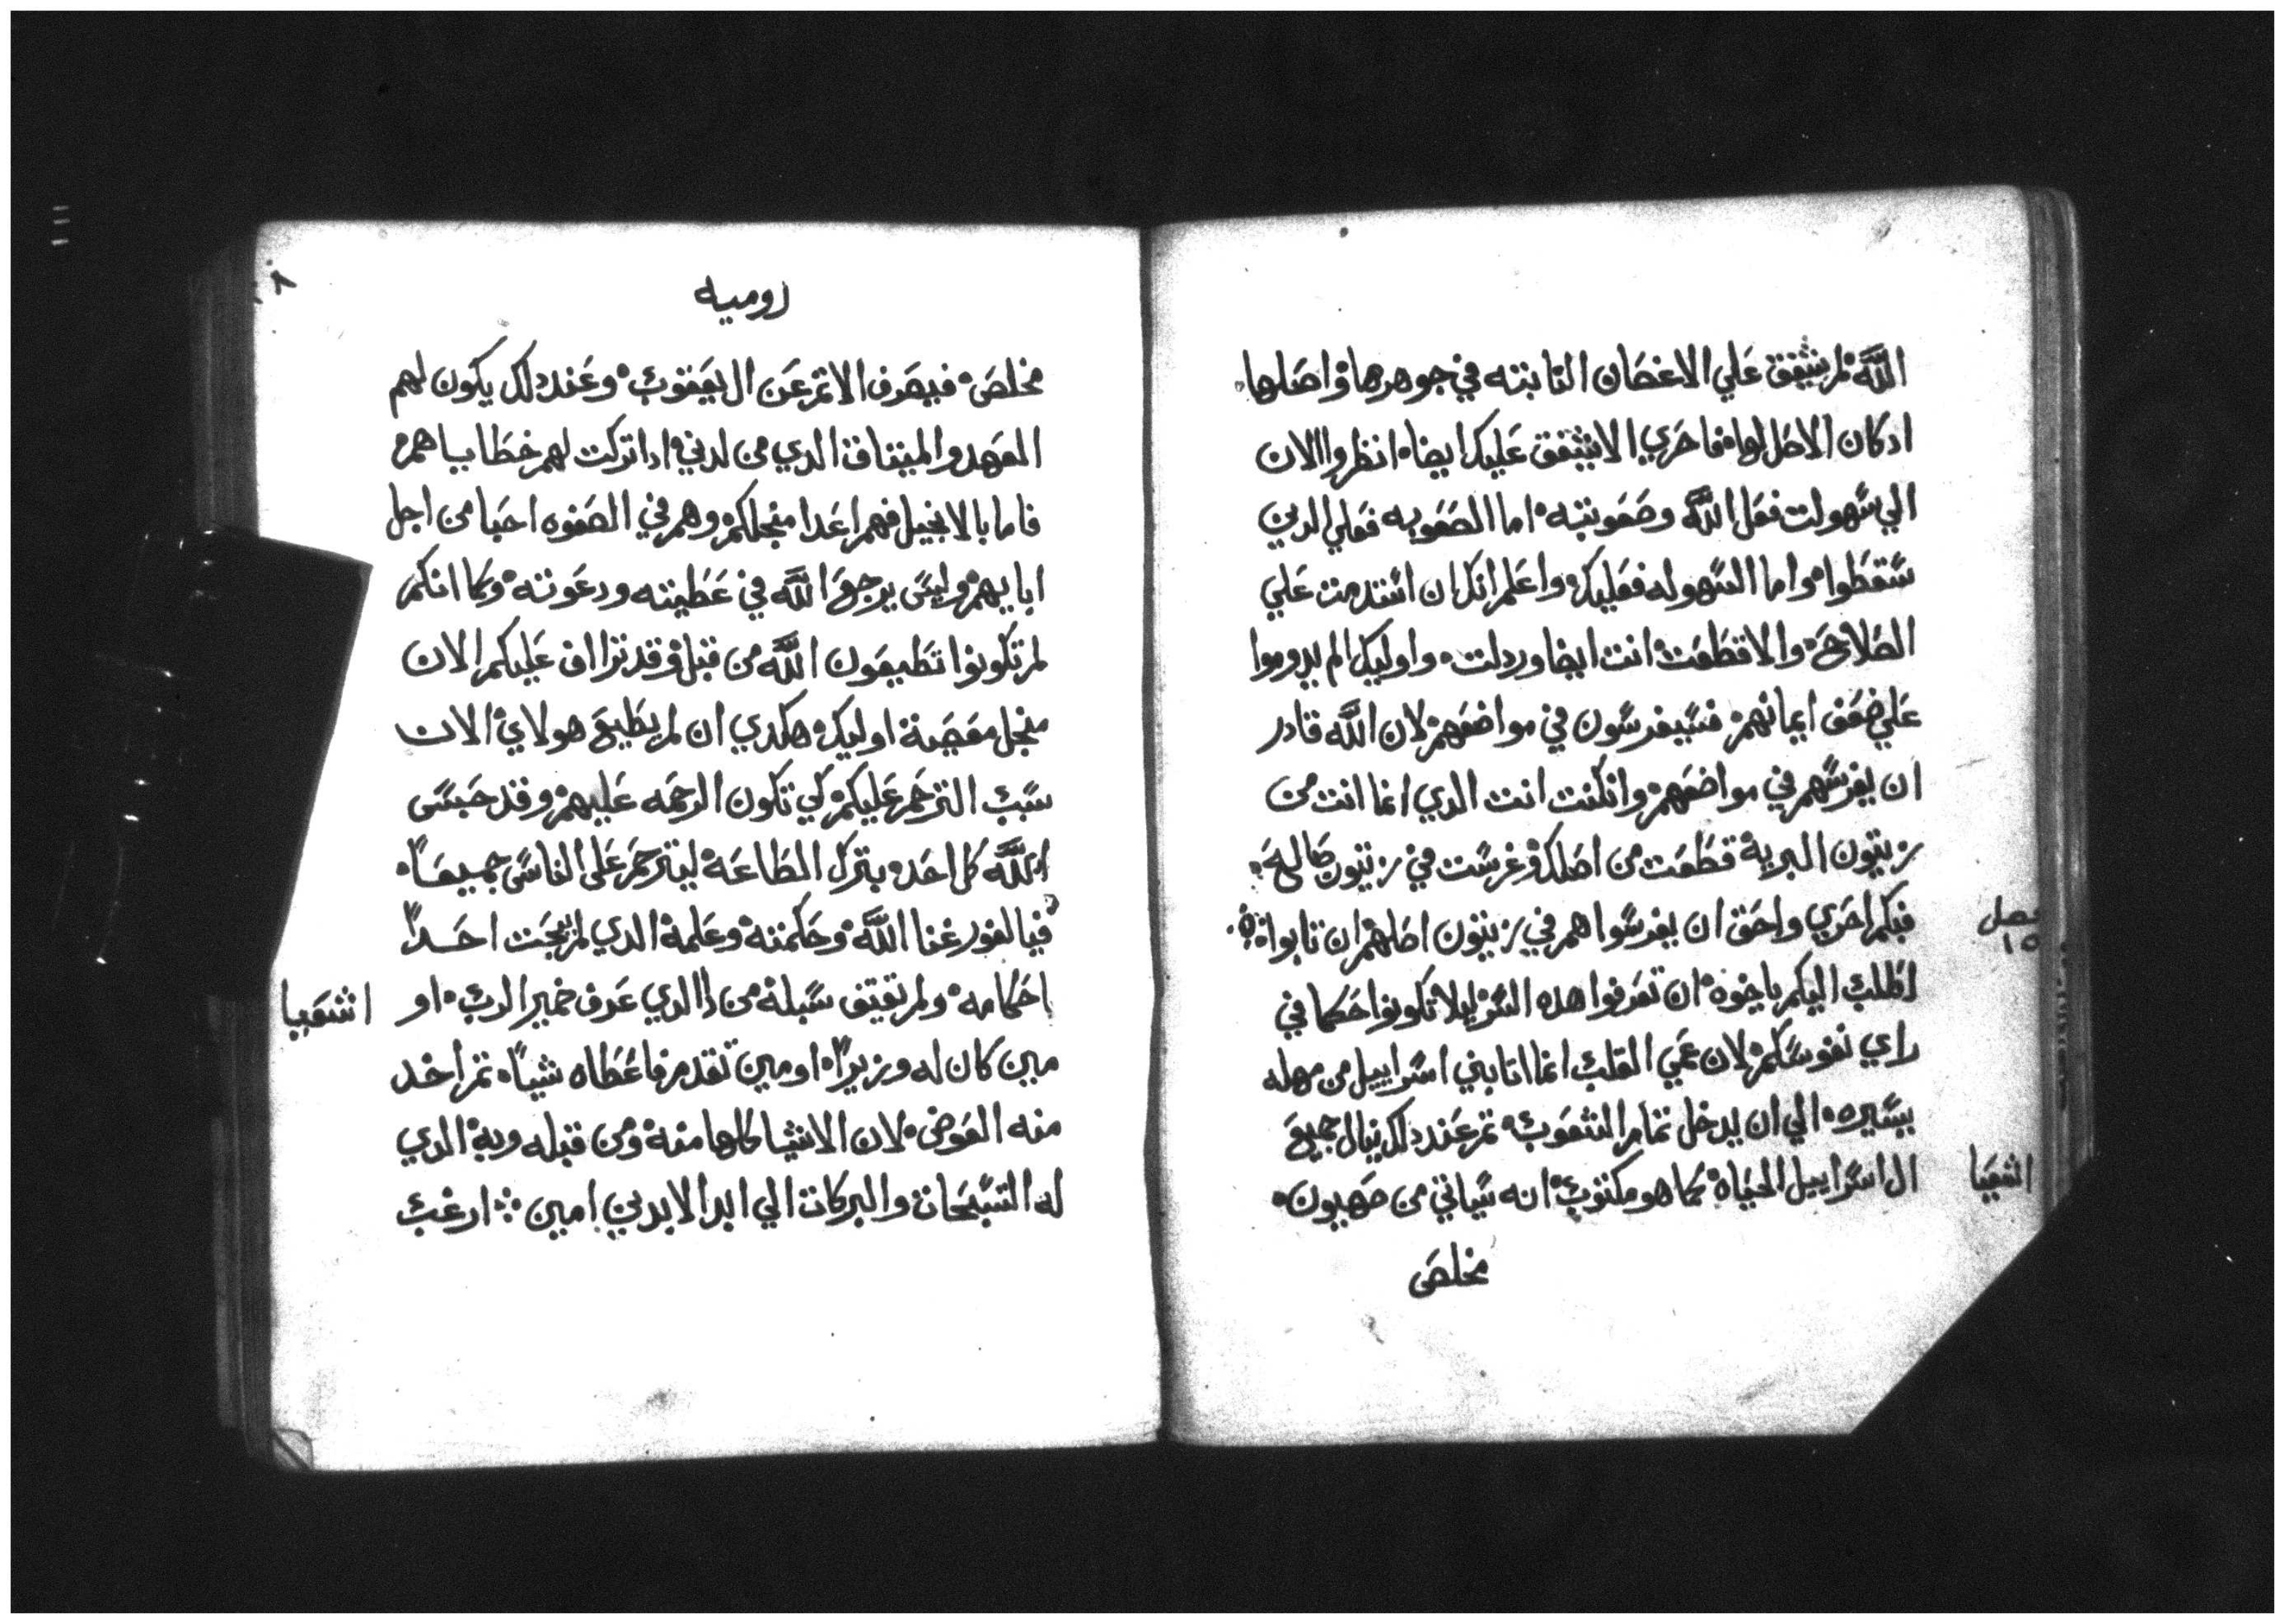 الله لم يشفق علي الاغصان التابته في جوهرها واصلها
ادكان الاصل لها فاحري الا يشفق عليك ايضا انظروا الان
الي سهولت فعل الله وصعوبته اما الصعوبه فعلي الدين
سقطوا واما السهوله فعليك واعلم انك ان استدمت علي
الصلاح والا قطعت انت ايضا وردلت واوليك الم يدوموا
علي ضعف ايمانهم فسيغرسون في مواضعهم لان الله قادر
ان يغرسهم في مواضعهم وان كنت انت الدي انما انت من
زيتون البرية قطعت من اصلك وغرست في زيتون صالح
فصل
١٥
فبكم احري واحق ان يغرسوا هم في زيتون اصلهم ان تابوا
اطلب اليكم ياخوة ان تعرفوا هده السر ليلا تكونوا حكما في
راي نفوسكم لان عمي القلب انما اتا بني اسراييل من مهله
يسيره الي ان يدخل تمام الشعوب تم عند دلك ينال جميع
اشعيا
ال اسراييل الحياة كما هو مكتوب انه سياتي من صهيون
مخلص
٨
روميه
مخلص فيصرف الاتم عن ال يعقوب وعند دلك يكون لهم
العهد والميتاق الدي من لدني ادا تركت لهم خطاياهم
فاما بالانجيل فهم اعدا منجلكم وهم في الصفوه احبا من اجل
ابايهم وليس يرجع الله في عطيته ودعوته وكما انكم
لم تكونوا تطيعون الله من قبل وقد تراف عليكم الان
منجل معصية اوليك هكدي ان لم يطيع هولاي الان
سبب الترحم عليكم كي تكون الرحمه عليهم وقد حبس
الله كل احد بترك الطاعة ليترحم على الناس جميعاً
فيا لغور غنا الله وحكمته وعلمة الدي لم يبحت احداً
اشعيا
احكامه ولم تقتف سبلة من دا الدي عرف ضمير الرب او
مين كان له وزيراً او مين تقدم فاعطاه شياً تم اخد
منه العوض لان الاشيا كلها منة ومن قبله وبة الدي
له التسبحات والبركات الي ابد الابدين امين ارغب